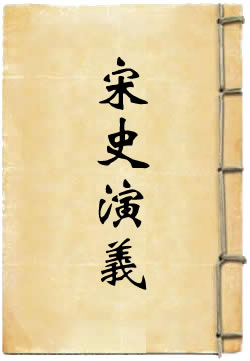 宋史演義